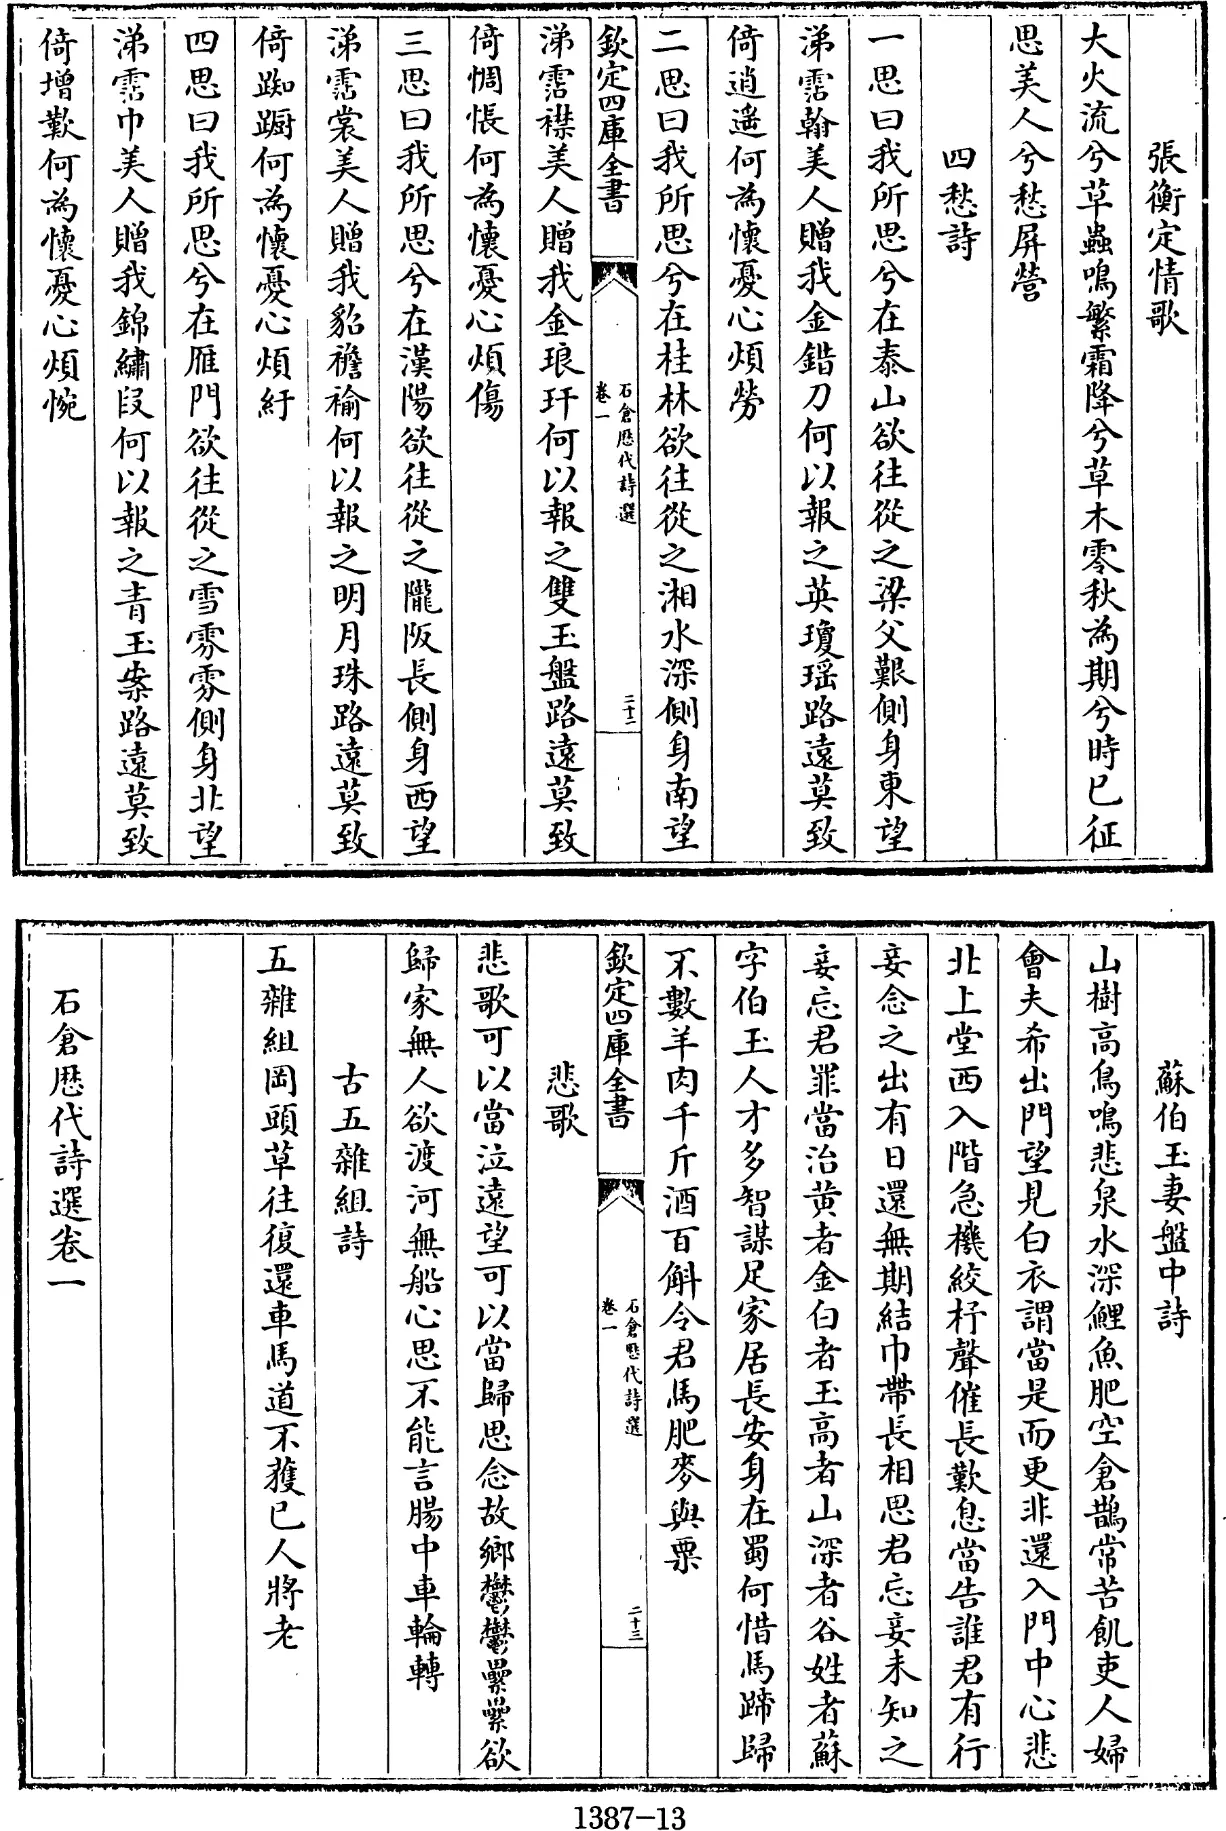 張衡定情歌
大火流兮草蟲鳴繁霜降兮草木零秋為期兮時已征
思美人兮愁屏營
四愁詩
一思曰我所思兮在泰山欲往從之梁父艱側身東望
涕霑翰美人贈我金錯刀何以報之英瓊瑤路遠莫致
倚逍遙何為懷憂心煩勞
二思曰我所思兮在桂林欲往從之湘水深側身南望
欽定四庫全書
石倉歷代詩選
卷一
二十二
涕霑襟美人贈我金琅玕何以報之雙玉盤路遠莫致
倚惆悵何為懷憂心煩傷
三思曰我所思兮在漢陽欲往從之隴阪長側身西望
涕霑裳美人贈我貂襜褕何以報之明月珠路遠莫致
倚踟躕何為懷憂心煩紆
四思曰我所思兮在雁門欲往從之雪雰雰側身北望
涕霑巾美人贈我錦繡段何以報之青玉案路遠莫致
倚增歎何為懷憂心煩惋
蘇伯玉妻盤中詩
山樹高鳥鳴悲泉水深鯉魚肥空倉鵲常苦飢吏人婦
會夫希出門望見白衣謂當是而更非還入門中心悲
北上堂西入階急機絞杼聲催長歎息當告誰君有行
妾念之出有日還無期結巾帶長相思君忘妾未知之
妾忘君罪當治黃者金白者玉高者山深者谷姓者蘇
字伯玉人才多智謀足家居長安身在蜀何惜馬蹄歸
不數羊肉千斤酒百斛令君馬肥麥與粟
欽定四庫全書
石倉歷代詩選
卷一
二十三
悲歌
悲歌可以當泣遠望可以當歸思念故鄉鬱鬱纍纍欲
歸家無人欲渡河無船心思不能言腸中車輪轉
古五雜組詩
五雜組岡頭草往復還車馬道不獲已人將老
石倉歷代詩選卷一
1387-13